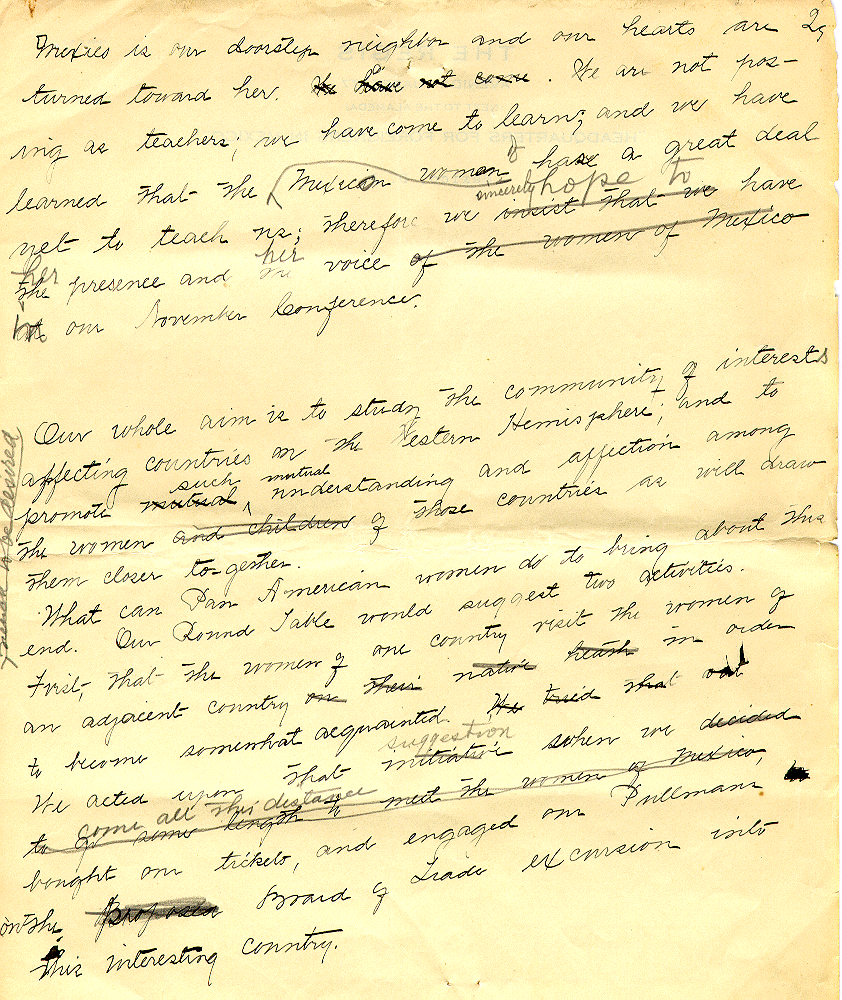 2,
Mexico is our doorstep neighbor and our hearts are
turned toward her. We have not come. We are not pos-
ing as teachers, we have come to learn; and we have
learned that the Mexican women have a great deal
sincerely hope to
yet to teach us; therefore we insist that we have
her her
the presence and the voice of the women of Mexico
our November Conference.
Our whole aim is to study the community of interests
affecting countries in the Western Hemisphere; and to
such mutual
promote mutual understanding and affection among
the women and children of those countries as will draw
them closer to-gether.
What can Pan American women do to bring about this
end. Our Round Table would suggest two activities.
First, that the women of one country visit the women of
an adjacent country on their native heath in order
to become somewhat acquainted. We tried that out
suggestion
We acted upon that initiative when we decided
come all this distance
to go some length to meet the women of Mexico,
bought our tickets, and engaged our Pullmans
on the proposed Board of Trade excursion into
this interesting country.
to be desired